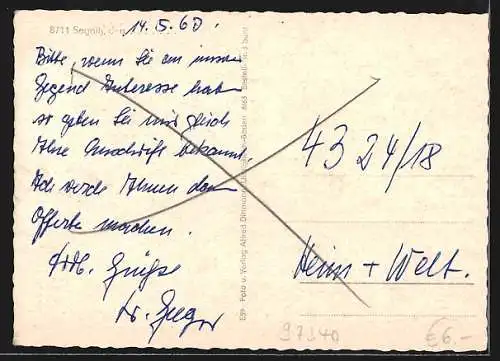 8711 Segnitz,
14.5.60.
Bitte, wenn Sie an unserer
Gegend Interesse haben
so geben Sie mir gleich
Ihre Anschrift bekannt.
Ich werde Ihnen dann
Offerte machen.
Frdl. Grüße
4324/18
Heim + Welt.
E59 Foto u. Verlag Alfred
97340
€6.-